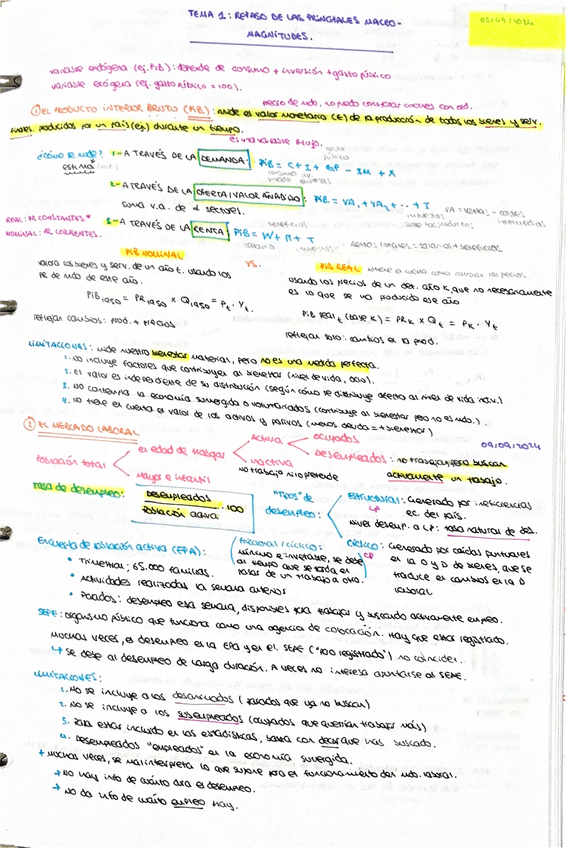 TEMA 1: REPASO DE LAS PRINCIPALES MACRO-
MAGNITUDES.
03/09/2024
variable endógena (ej. PIB): depende de consumo + inversión + gasto público
variable exógena (ej. gasto público = 100).
precio de mdo.
① EL PRODUCTO INTERIOR BRUTO (PIB): mide el valor monetario (€) de la producción de todos los bienes y serv.
finales producidos por un país (ej.) durante un tiempo.
es una variable flujo.
¿cómo se mide? 1- A TRAVÉS DE LA DEMANDA: PIB = C + I + GP - IM + X
gasto público
2- A TRAVÉS DE LA OFERTA/VALOR AÑADIDO: PIB = VA₁ + VA₂ + .. + T
suma v.a. de 4 sectores.
VA = ventas - costes intermedios
REAL: PR CONSTANTES*
NOMINAL: PR CORRIENTES.
3- A TRAVÉS DE LA RENTA: PIB = W + Π + T
beneficios
salarios
impuestos
PIB NOMINAL VS. PIB REAL
valora los bienes y serv. de un año t. usando los
pr de mdo de este año.
usando los precios de un det. año k, que no necesariamente
es lo que se ha producido ese año
PIB 1950 = PR 1950 x Q 1950 = Pt . Yt
PIB real t (base k) = PRk x Qt = Pk . Yt
reflejan cambios: prod. + precios
reflejan solo: cambios en la prod.
LIMITACIONES: mide nuestro bienestar material, pero no es una medida perfecta.
1. No incluye factores que contribuyen al bienestar (nivel de vida, ocio).
2. El valor es independiente de su distribución (según cómo se distribuye afecta al nivel de vida indiv.)
3. No contempla la economía sumergida o voluntariados (contribuye al bienestar pero no es mdo.).
4. No tiene en cuenta el valor de los activos y pasivos (menos deuda = + bienestar)
② EL MERCADO LABORAL
09/09/2024
Población total
en edad de trabajar
Mayor e infantil
Activa
inactiva
no trabaja ni pretende
ocupados
Desempleados: no trabajan pero buscan
activamente un trabajo.
TASA de desempleo: desempleados / población activa . 100
"Tipos" de desempleo:
Estructural: Generado por ineficiencias
ec. del país.
LP
Nivel desemp. a LP: tasa natural de des.
Friccional/cíclico:
mínimo e inevitable, se debe
al tiempo que se tarda en
pasar de un trabajo a otro.
CP
Cíclico: Generado por caídas puntuales
en la O y D de bienes, que se
traduce en cambios en la D
laboral
Encuesta de población activa (EPA):
• Trimestral; 65.000 familias.
• Actividades realizadas la semana anterior
• Parados: desempleo esa semana, disponibles para trabajar y buscando activamente empleo.
SEPE: organismo público que funciona como una agencia de colocación. Hay que estar registrado.
Muchas veces, el desempleo en la EPA y en el SEPE ("paro registrado") no coinciden.
↳ se debe al desempleo de larga duración. A veces no interesa apuntarse al SEPE.
LIMITACIONES:
1. No se incluye a los desanimados (parados que ya no buscan)
2. No se incluye a los subempleados (ocupados que querrían trabajar más)
3. Para estar incluido en las estadísticas, basta con decir que has buscado.
4. Desempleados "empleados" en la economía sumergida.
+ Muchas veces, se malinterpreta lo que supone para el funcionamiento del mdo. laboral.
→ No hay info de cuánto dura el desempleo.
→ no da info de cuánto empleo hay.